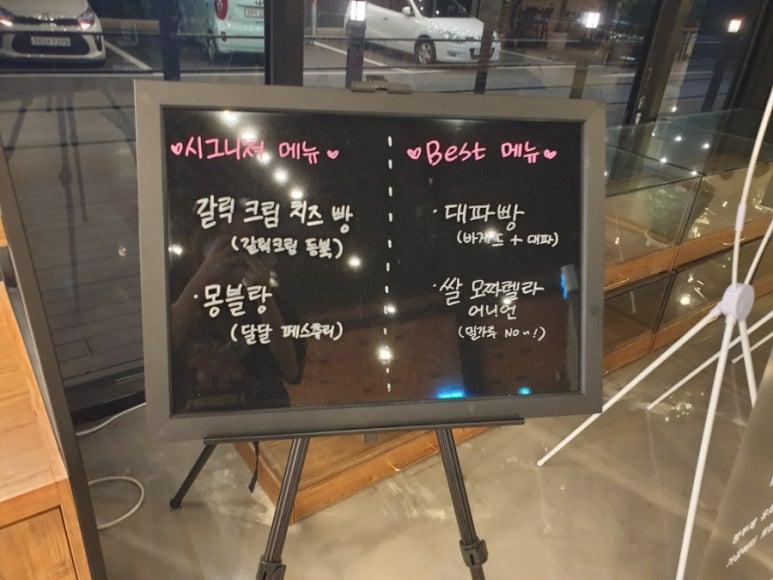 ♥시그니처 메뉴♥
갈릭 크림 치즈 빵
(갈릭크림 듬뿍)
· 몽블랑
(달달 페스츄리)
♥Best 메뉴♥
· 대파빵
(바게트 + 대파)
· 쌀 모짜렐라
어니언
(밀가루 No~!)